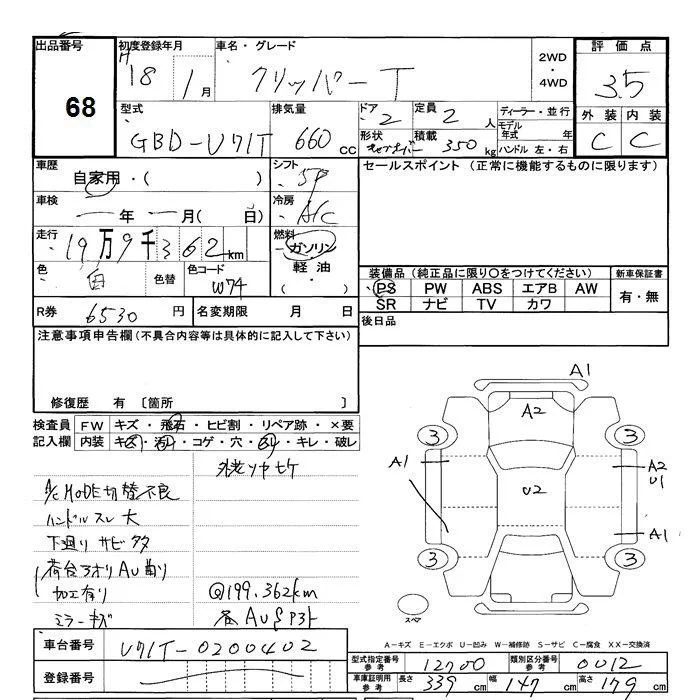 出品番号 68
初度登録年月 H 18年 1月
車名・グレード クリッパートラック
2WD・4WD
評価点 3.5
外装 C 内装 C
型式 GBD-U71T
排気量 660 cc
ドア 2 定員 2人
形状 積載 350 kg
ディーラー・並行
モデル年式 年
ハンドル 左・右
車歴 自家用・( )
シフト 5F
セールスポイント (正常に機能するものに限ります)
車検 ー年ー月( 日)
冷房 A/C
走行 19万9千362km
燃料 ガソリン 軽油・
色 白 色替 色コード W74
装備品 (純正品に限り○をつけてください) 新車保証書
PS PW ABS エアB AW 有・無
SR ナビ TV カワ
R券 6530円 名変期限 月 日
後日品
注意事項申告欄 (不具合内容等は具体的に記入して下さい)
修復歴 有 〔箇所 〕
検査員 FW キズ・飛石・ヒビ割・リペア跡・×要
記入欄 内装 キズ・汚れ・コゲ・穴・スレ・キレ・破レ
A/C MODE切替不良
ハンドルスレ大
下廻りサビ多
荷台アオリAU削り
加工有り
ミラーキズ
@199.362km
各AU
A1
A2
3 3
A1 A2 U1
U2
A1
3 3
スペア
A-キズ E-エクボ U-凹み W-補修跡 S-サビ C-腐食 XX-交換済
車台番号 U71T-0200402
登録番号
型式指定番号参考 12700 類別区分番号参考 0012
車庫証明用参考 長さ 339cm 幅 147cm 高さ 179cm